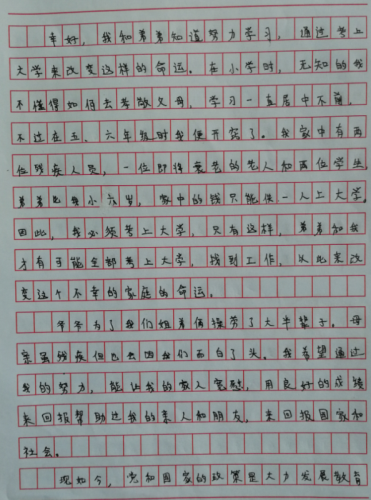 幸好，我和弟弟知道努力学习，通过考上
大学来改变这样的命运。在小学时，无知的我
不懂得如何去孝敬父母，学习一直居中不前，
不过在五、六年级时我便开窍了。我家中有两
位残疾人员，一位即将衰老的老人和两位学生，
弟弟比我小六岁，家中的钱只能供一人上大学，
因此，我必须考上大学，只有这样，弟弟和我
才有可能全部考上大学，找到工作，从此来改
变这个不幸的家庭的命运。
爷爷为了我们姐弟俩操劳了大半辈子，母
亲虽残疾但也会因我们而白了头。我希望通过
我的努力，能让我的家人宽慰，用良好的成绩
来回报帮助过我的亲人和朋友，来回报国家和
社会。
现如今，党和国家的政策是大力发展教育